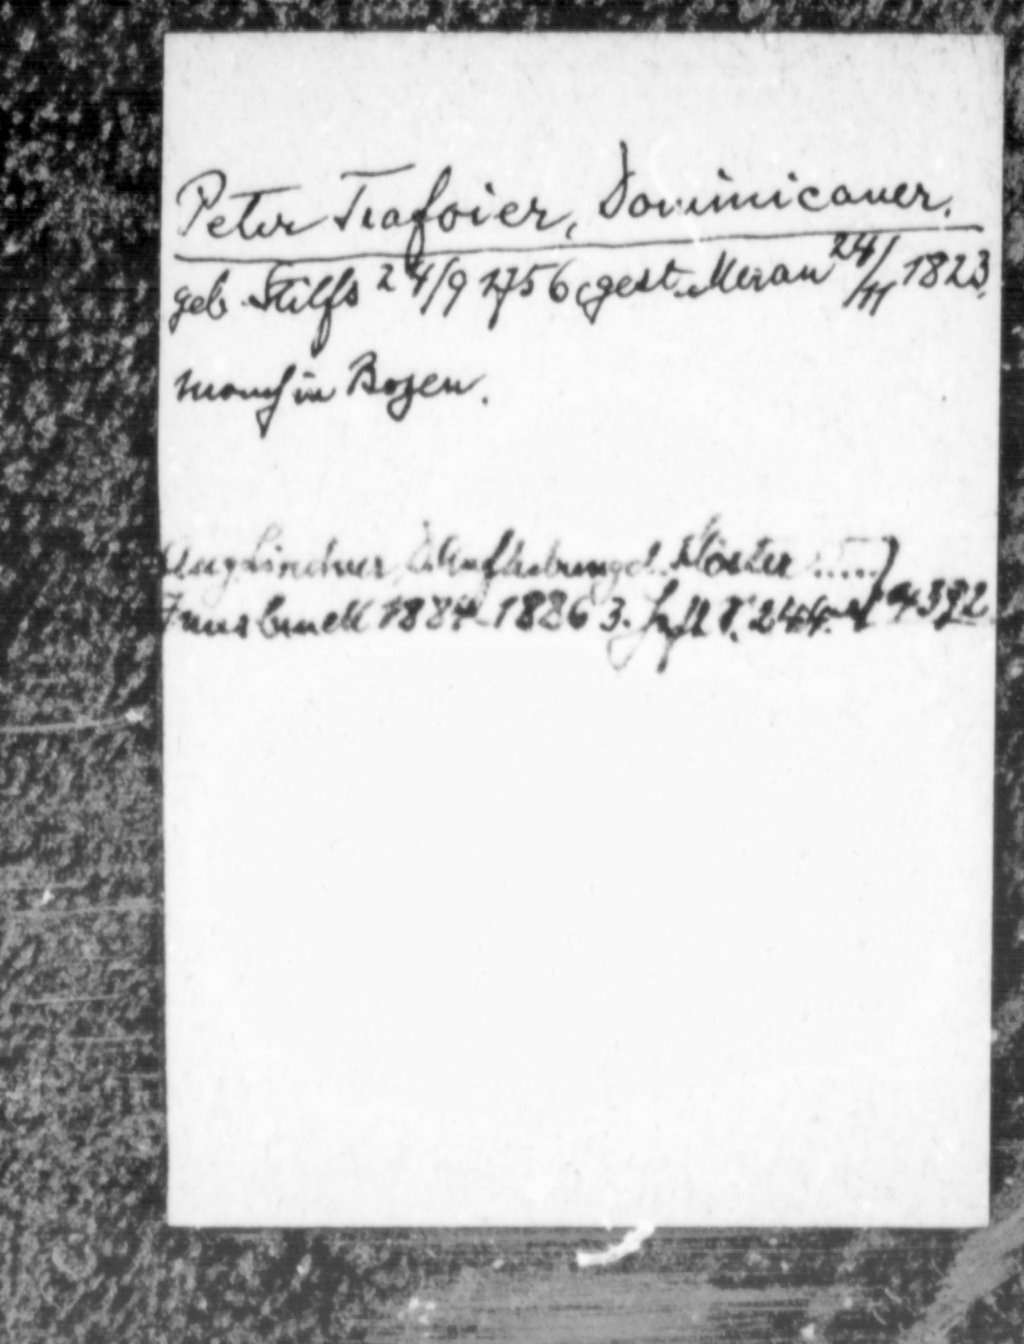 Peter Trafoier, Dominicaner.
geb. Stilfs 24/9 1756, gest. Meran 24/11 1823.
mönch in Bozen.
Aug Lindner D. Aufhebung d. Klöster .....)
Innsbruck 1884-1886 3. Heft S. 244.